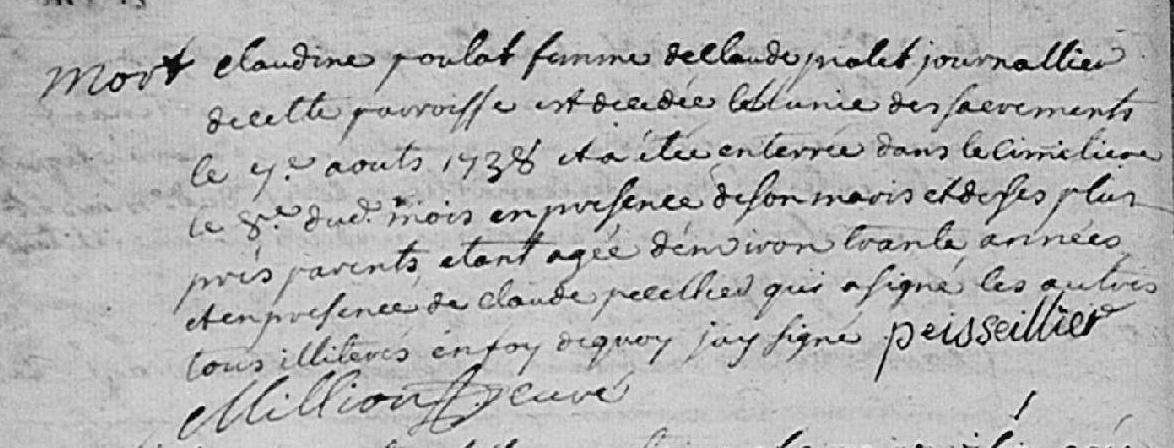 Mort Claudine poulat femme de Claude pralet journallier
de cette parroisse est decedée et munie des sacrements
le 7.e aouts 1738 et a étée enterrée dans le cimetiere
le 8.e dud. mois en presence de son maris et de ses plus
près parents, etant agée d'environ trante années
et en presence de Claude pecellier qui a signé, les autres
tous illiterés en foy de quoy j'ay signé peisseillier
Million curé